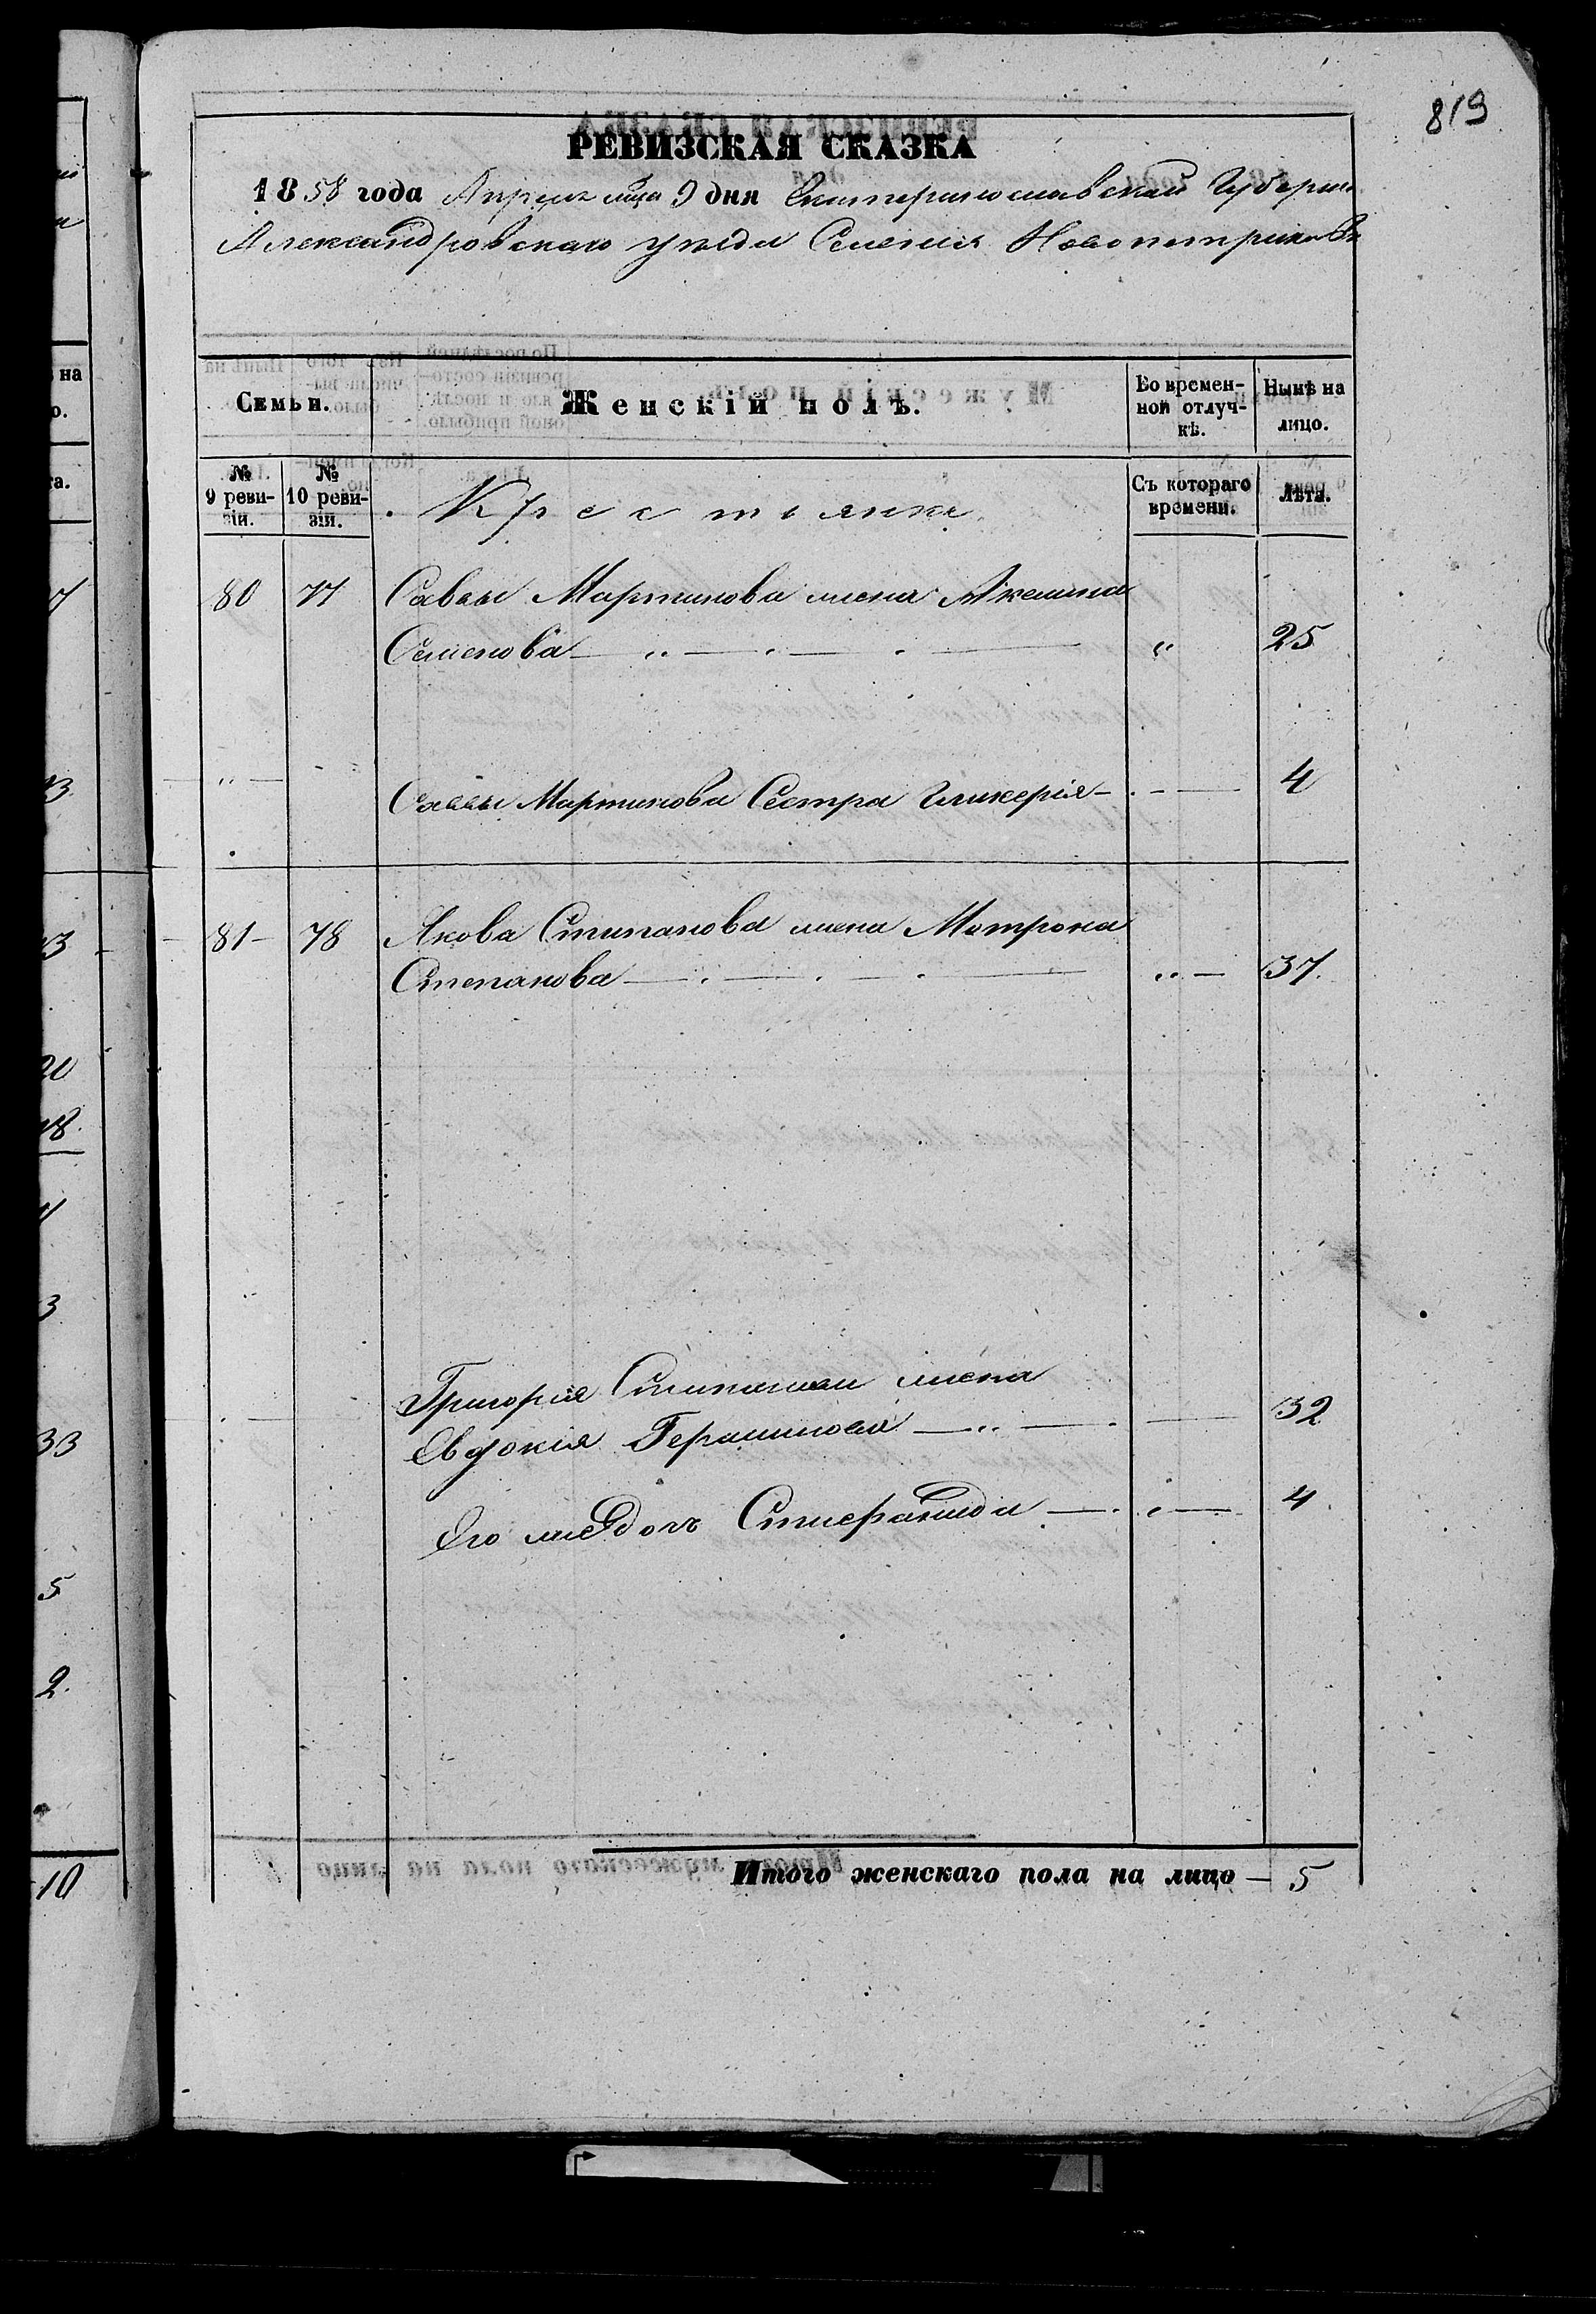 819
РЕВИЗСКАЯ СКАЗКА
1858 года Апреля мца 9 дня Екатеринославской Губернии
Александровскаго уезда Селения Новопетриковки
Семьи. Женскій полъ. Во времен-ной отлуч-кѣ. Нынѣ на лицо.
№ 9 реви-зіи. № 10 реви-зіи. Крестьянка Съ котораго времени. Лѣта.
80 77 Саввы Мартинова жена Акелина
Семенова — „ — „ — „ — „ 25
„ — Саввы Мартинова Сестра Гликерія — „ — 4
81 — 78 Якова Стипанова жена Мотрона
Степанова — „ — „ — „ — „ — 37.
Григорія Стипанова жена
Евдокія Герасимова — „ — „ — 32
Его дочь Стиефанида — „ — „ — 4
Итого женскаго пола на лицо — 5
на
о.
та.
7
13
13
20
18.
4
3
33
5
2.
10